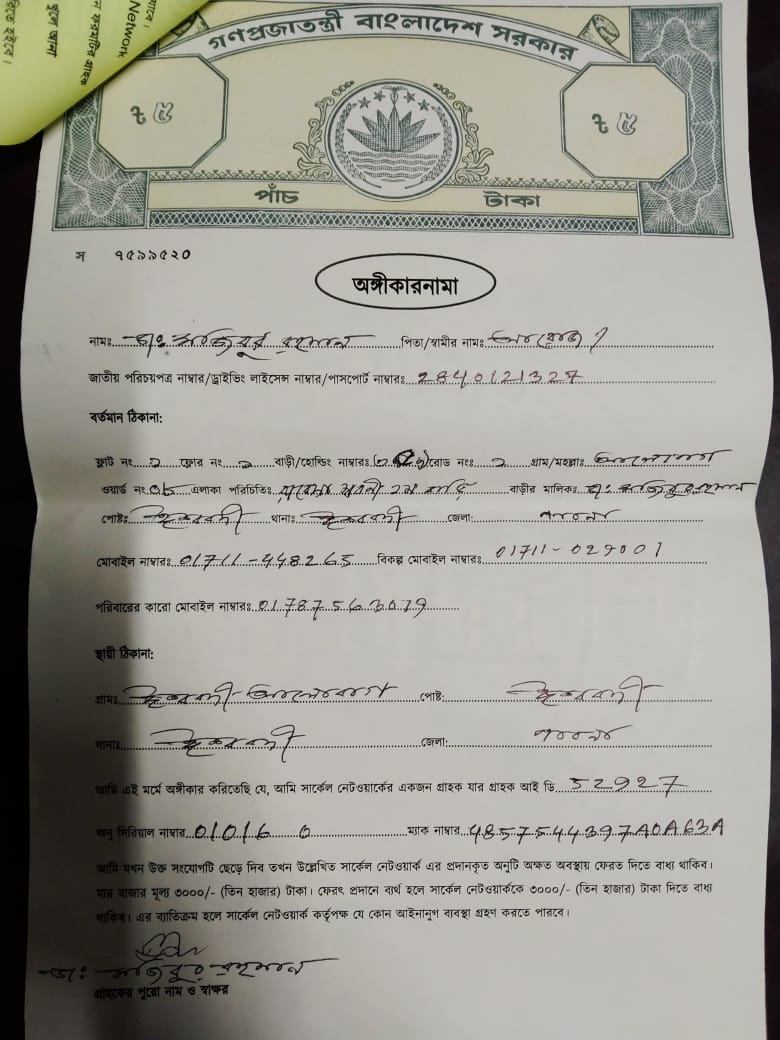 Network
খুলে জানা
গণপ্রজাতন্ত্রী বাংলাদেশ সরকার
ট ৫ ট ৫
পাঁচ টাকা
স ৭৫৯৯৫২০
অঙ্গীকারনামা
নামঃ ডাঃ মজিবুর রহমান পিতা/স্বামীর নামঃ
জাতীয় পরিচয়পত্র নাম্বার/ড্রাইভিং লাইসেন্স নাম্বার/পাসপোর্ট নাম্বারঃ 2840121327
বর্তমান ঠিকানা:
ফ্লাট নং ফ্লোর নং বাড়ী/হোল্ডিং নাম্বারঃ রোড নংঃ গ্রাম/মহল্লাঃ আলোবাগ
ওয়ার্ড নং এলাকা পরিচিতিঃ বাড়ীর মালিকঃ ডাঃ মজিবুর রহমান
পোষ্টঃ ঈশ্বরদী থানাঃ ঈশ্বরদী জেলা: পাবনা
মোবাইল নাম্বারঃ 01711-448265 বিকল্প মোবাইল নাম্বারঃ 01711-029001
পরিবারের কারো মোবাইল নাম্বারঃ 01787563079
স্থায়ী ঠিকানা:
গ্রামঃ ঈশ্বরদী আলোবাগ পোষ্ট: ঈশ্বরদী
থানাঃ ঈশ্বরদী জেলা: পাবনা
আমি এই মর্মে অঙ্গীকার করিতেছি যে, আমি সার্কেল নেটওয়ার্কের একজন গ্রাহক যার গ্রাহক আই ডি 52927
অনু সিরিয়াল নাম্বার 01016 0 ম্যাক নাম্বার 4857544397A0A63A
আমি যখন উক্ত সংযোগটি ছেড়ে দিব তখন উল্লেখিত সার্কেল নেটওয়ার্ক এর প্রদানকৃত অনুটি অক্ষত অবস্থায় ফেরত দিতে বাধ্য থাকিব।
যার বাজার মূল্য ৩০০০/- (তিন হাজার) টাকা। ফেরৎ প্রদানে ব্যর্থ হলে সার্কেল নেটওয়ার্ককে ৩০০০/- (তিন হাজার) টাকা দিতে বাধ্য
থাকিব। এর ব্যতিক্রম হলে সার্কেল নেটওয়ার্ক কর্তৃপক্ষ যে কোন আইনানুগ ব্যবস্থা গ্রহণ করতে পারবে।
ডাঃ মজিবুর রহমান
গ্রাহকের পুরো নাম ও স্বাক্ষর